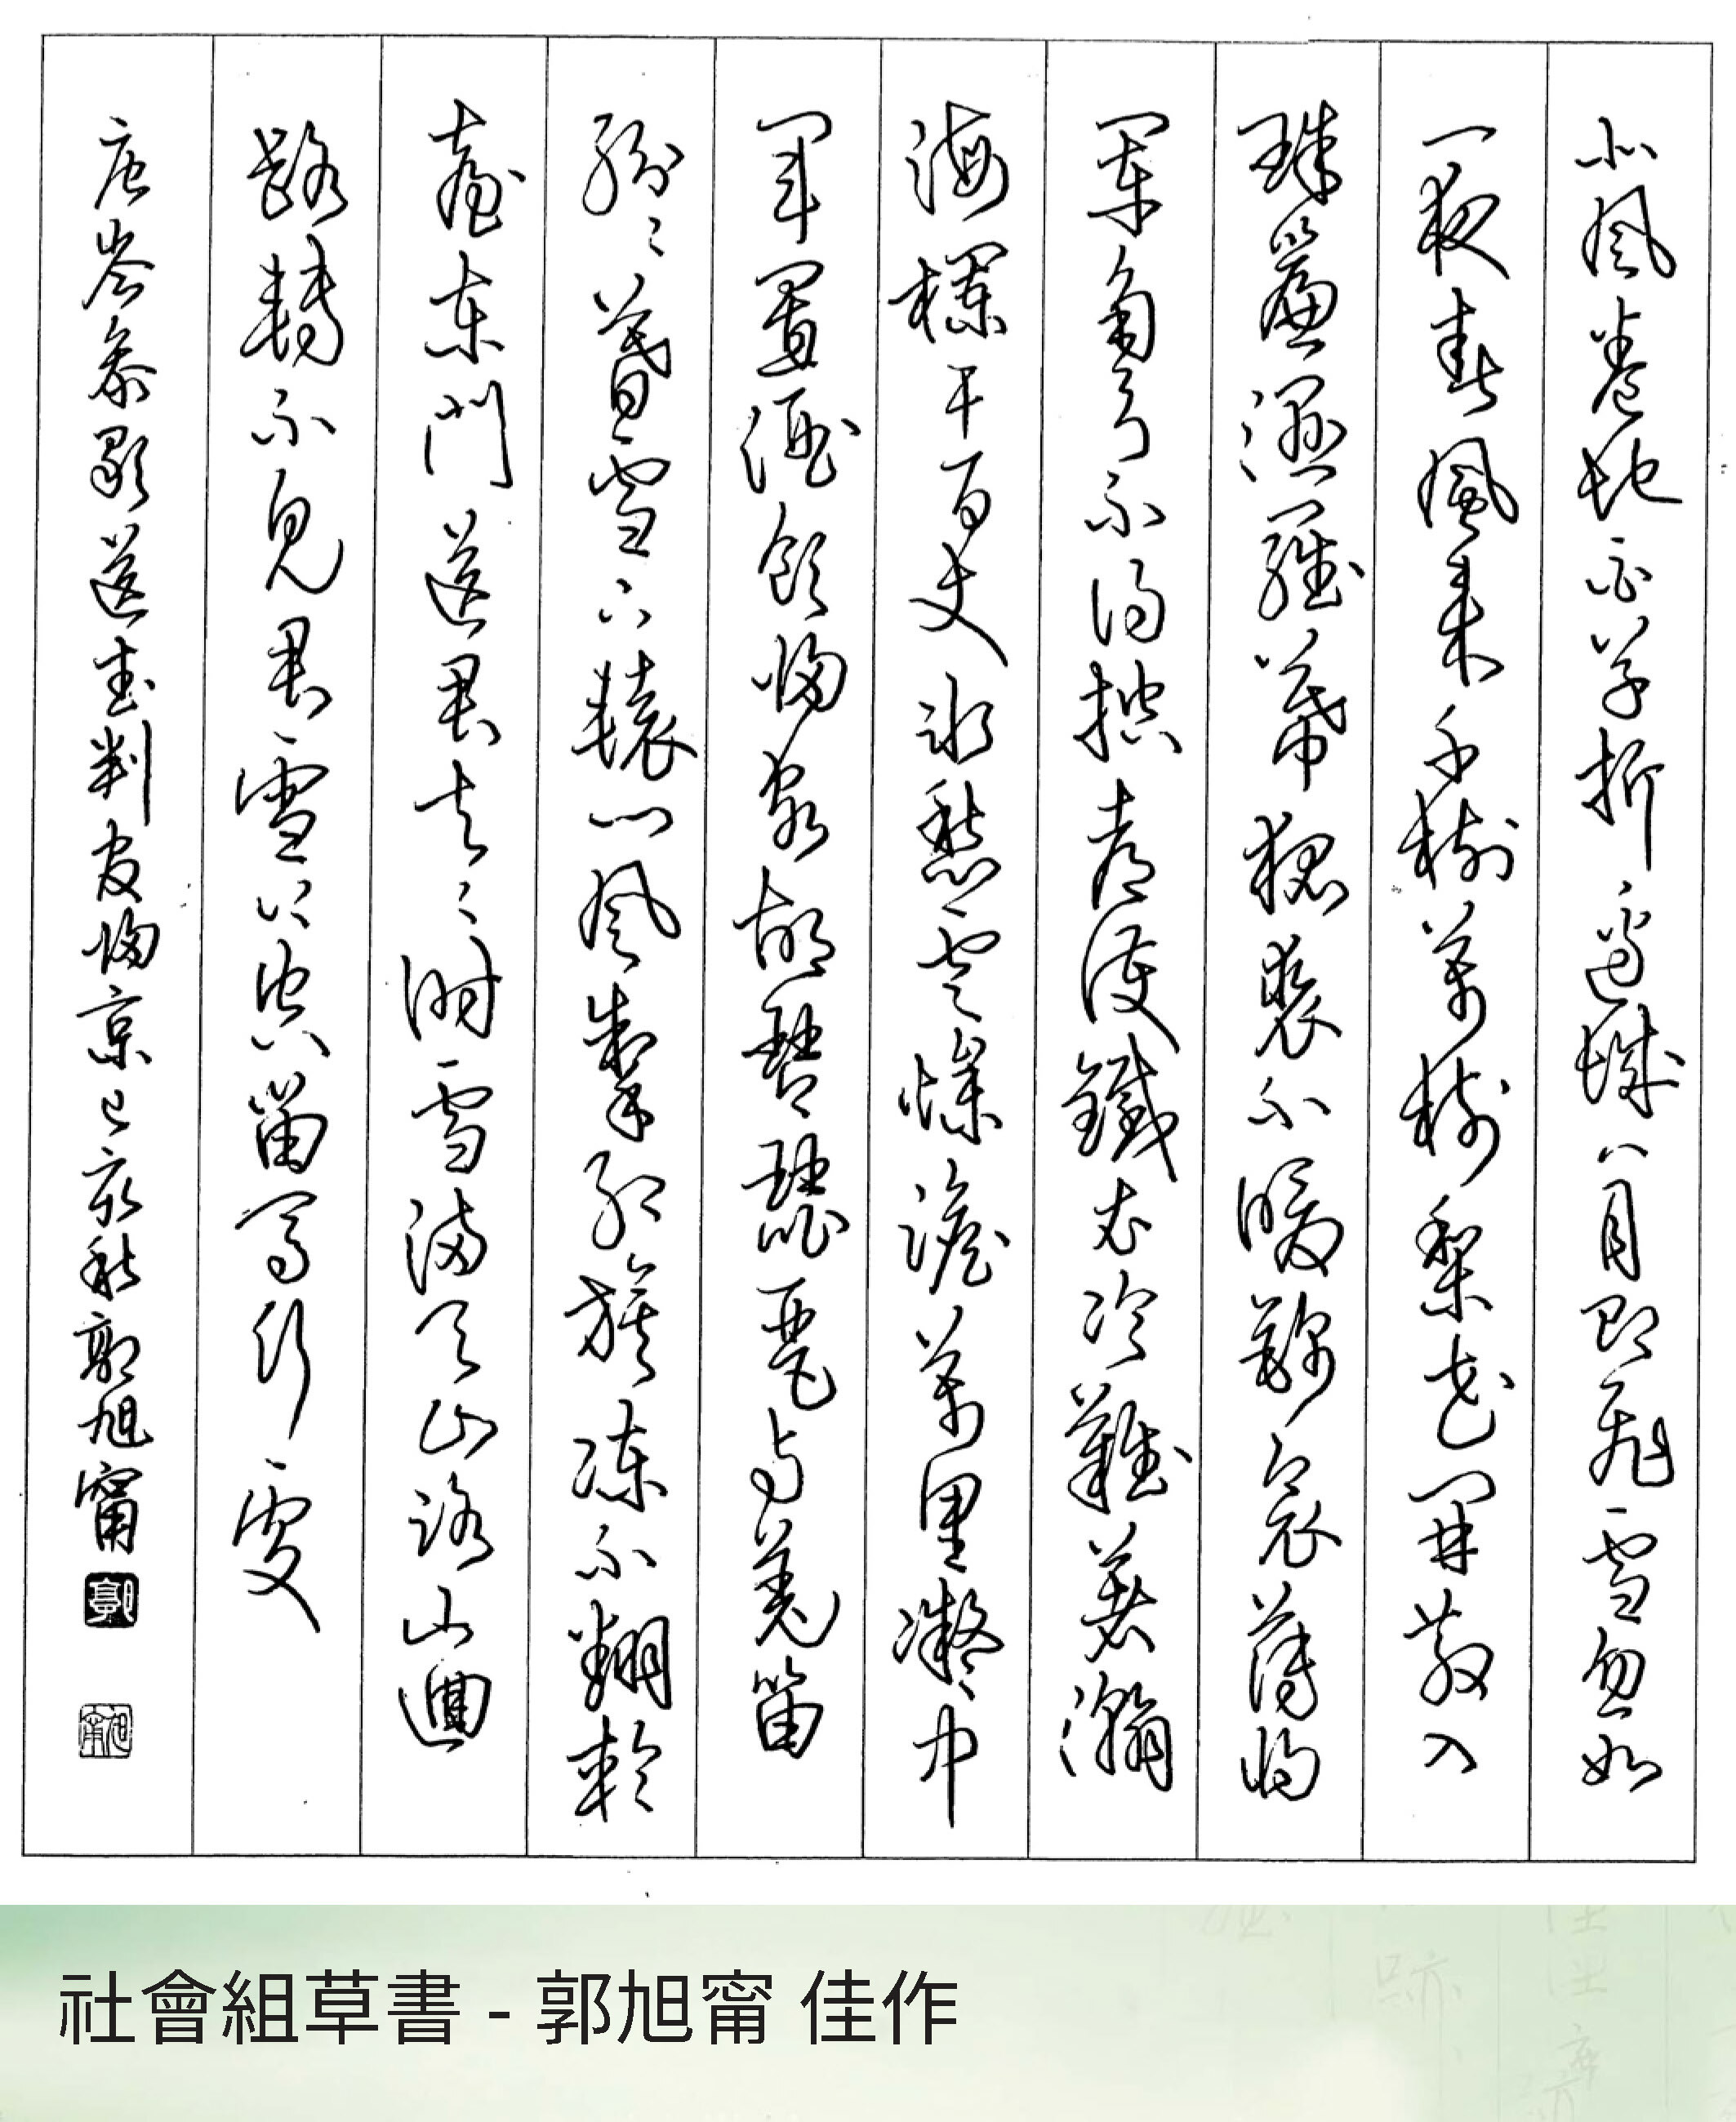 北風卷地白草折邊城八月即飛雪忽如
一夜春風來千樹萬樹梨花開散入
珠簾濕羅幕狐裘不暖錦衾薄將
軍角弓不得控都護鐵衣冷難著瀚
海欄干百丈冰愁雲慘澹萬里凝中
軍置酒飲歸客胡琴琵琶與羌笛
紛紛暮雪下轅門風掣紅旗凍不翻輪
臺東門送君去去時雪滿天山路山迴
路轉不見君雪上空留馬行處
唐岑參歌送武判官歸京己亥秋郭旭甯
郭
旭甯
社會組草書 - 郭旭甯 佳作